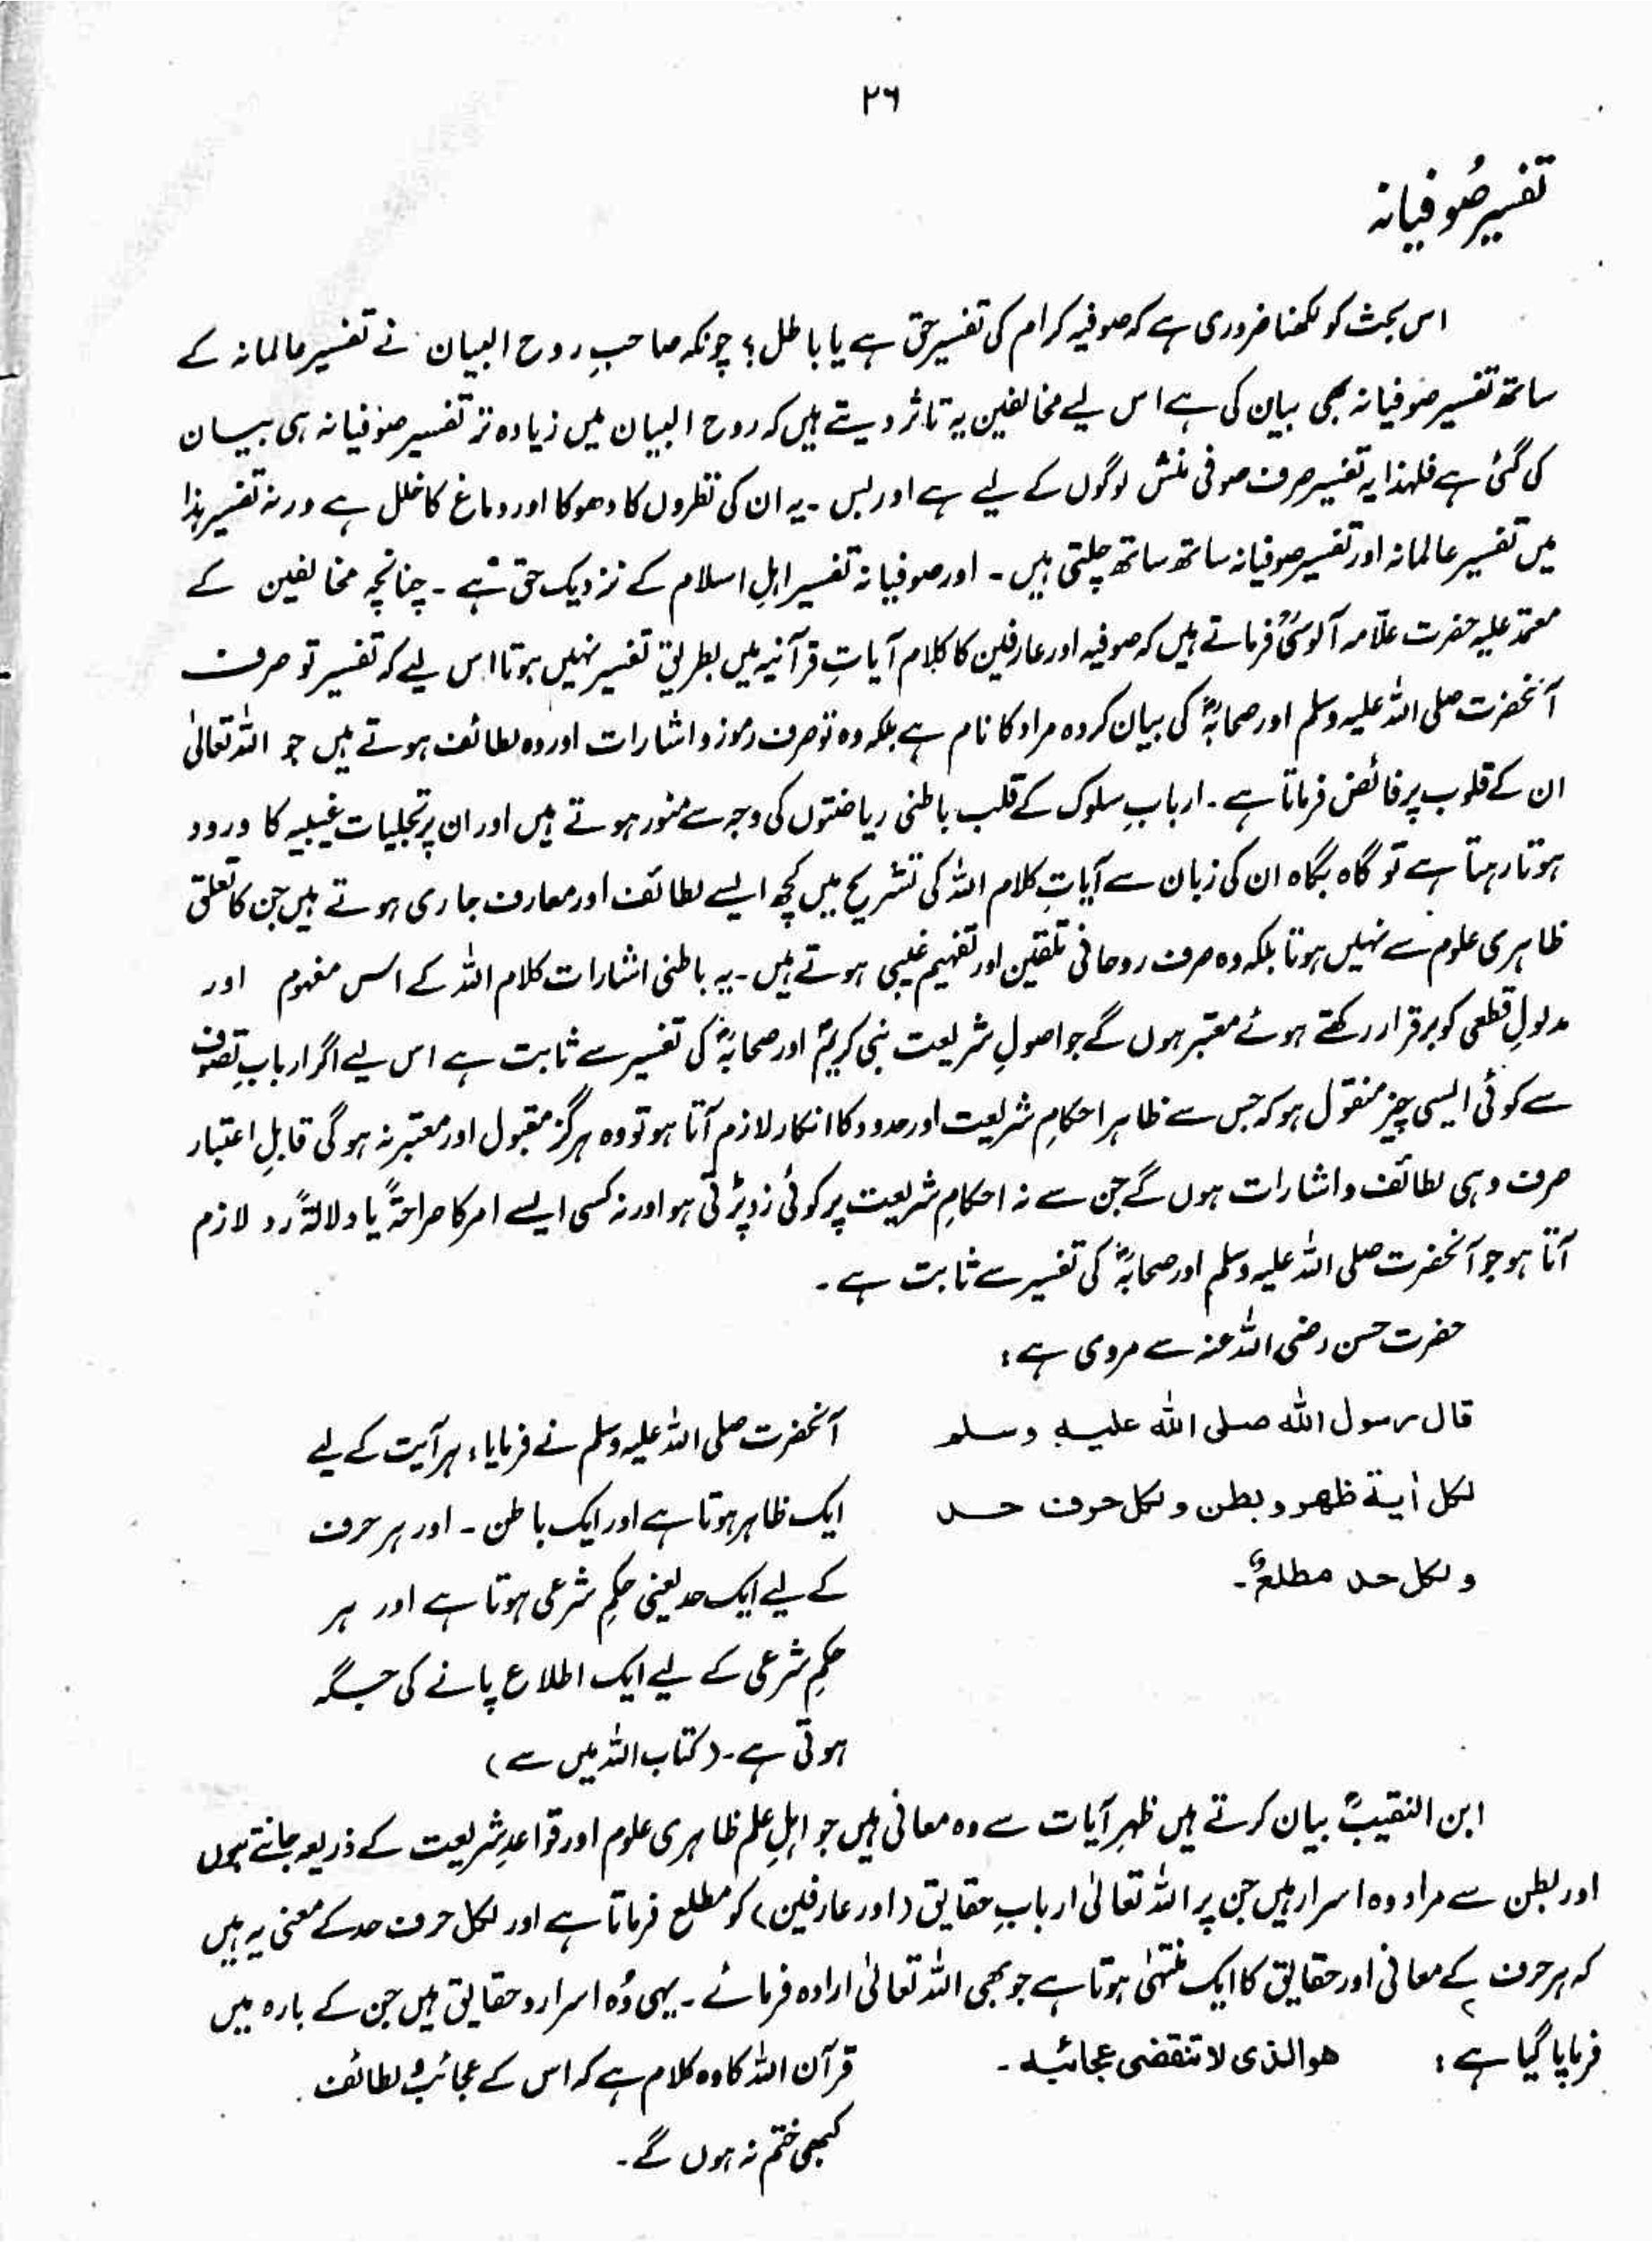 ۲۶
تفسیر صُوفیانہ
اس بحث کو لکھنا ضروری ہے کہ صوفیہ کرام کی تفسیر حق ہے یا باطل؟ چونکہ صاحبِ روح البیان نے تفسیر عالمانہ کے
ساتھ تفسیر صوفیانہ بھی بیان کی ہے اس لیے مخالفین یہ تاثر دیتے ہیں کہ روح البیان میں زیادہ تر تفسیر صوفیانہ ہی بیان
کی گئی ہے فلہٰذا یہ تفسیر صرف صوفی منش لوگوں کے لیے ہے اور بس ۔ یہ ان کی نظروں کا دھوکا اور دماغ کا خلل ہے ورنہ تفسیر ہذا
میں تفسیر عالمانہ اور تفسیر صوفیانہ ساتھ ساتھ چلتی ہیں ۔ اور صوفیانہ تفسیر اہلِ اسلام کے نزدیک حق ہے ۔ چنانچہ مخالفین کے
معتمد علیہ حضرت علّامہ آلوسیؒ فرماتے ہیں کہ صوفیہ اور عارفین کا کلام آیاتِ قرآنیہ میں بطریقِ تفسیر نہیں ہوتا اس لیے کہ تفسیر تو صرف
آنحضرت صلی اللہ علیہ وسلم اور صحابہؓ کی بیان کردہ مراد کا نام ہے بلکہ وہ تو صرف رموز و اشارات اور وہ لطائف ہوتے ہیں جو اللہ تعالیٰ
ان کے قلوب پر فائض فرماتا ہے ۔ اربابِ سلوک کے قلب باطنی ریاضتوں کی وجہ سے منور ہوتے ہیں اور ان پر تجلیات غیبیہ کا ورود
ہوتا رہتا ہے تو گاہ بگاہ ان کی زبان سے آیاتِ کلام اللہ کی تشریح میں کچھ ایسے لطائف اور معارف جاری ہوتے ہیں جن کا تعلق
ظاہری علوم سے نہیں ہوتا بلکہ وہ صرف روحانی تلقین اور تفہیم غیبی ہوتے ہیں ۔ یہ باطنی اشارات کلام اللہ کے اس مفہوم اور
مدلولِ قطعی کو برقرار رکھتے ہوئے معتبر ہوں گے جو اصولِ شریعت نبی کریمؐ اور صحابہؓ کی تفسیر سے ثابت ہے اس لیے اگر اربابِ تصوف
سے کوئی ایسی چیز منقول ہو کہ جس سے ظاہر احکامِ شریعت اور حدود کا انکار لازم آتا ہو تو وہ ہرگز مقبول اور معتبر نہ ہوگی قابلِ اعتبار
صرف وہی لطائف و اشارات ہوں گے جن سے نہ احکامِ شریعت پر کوئی زد پڑتی ہو اور نہ کسی ایسے امر کا صراحۃً یا دلالۃً رد لازم
آتا ہو جو آنحضرت صلی اللہ علیہ وسلم اور صحابہؓ کی تفسیر سے ثابت ہے ۔
حضرت حسن رضی اللہ عنہ سے مروی ہے :
قال رسول اللہ صلی اللہ علیہ وسلم
لکل اٰیۃ ظھر و بطن و لکل حرف حد
و لکل حد مطلعٌ ۔
آنحضرت صلی اللہ علیہ وسلم نے فرمایا، ہر آیت کے لیے
ایک ظاہر ہوتا ہے اور ایک باطن ۔ اور ہر حرف
کے لیے ایک حد یعنی حکمِ شرعی ہوتا ہے اور ہر
حکمِ شرعی کے لیے ایک اطلاع پانے کی جگہ
ہوتی ہے ۔ (کتاب اللہ میں سے)
ابن النقیبؒ بیان کرتے ہیں ظہرِ آیات سے وہ معانی ہیں جو اہلِ علم ظاہری علوم اور قواعدِ شریعت کے ذریعہ جانتے ہوں
اور بطن سے مراد وہ اسرار ہیں جن پر اللہ تعالیٰ اربابِ حقایق (اور عارفین) کو مطلع فرماتا ہے اور لکل حرف حد کے معنی یہ ہیں
کہ ہر حرف کے معانی اور حقایق کا ایک منتہیٰ ہوتا ہے جو بھی اللہ تعالیٰ ارادہ فرمائے ۔ یہی وُہ اسرار و حقایق ہیں جن کے بارہ میں
فرمایا گیا ہے : ھو الذی لا تنقضی عجائبہ ۔
قرآن اللہ کا وہ کلام ہے کہ اس کے عجائب و لطائف
کبھی ختم نہ ہوں گے ۔